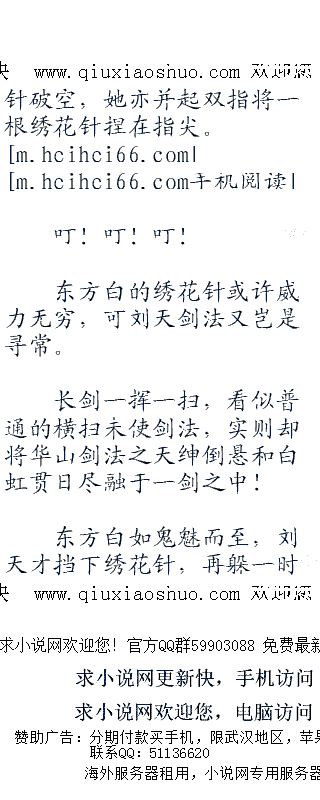 快 www.qiuxiaoshuo.com 欢迎您
针破空，她亦并起双指将一
根绣花针捏在指尖。
[m.hcihci66.com|
[m.hcihci66.com手机阅读|
叮！叮！叮！
东方白的绣花针或许威
力无穷，可刘天剑法又岂是
寻常。
长剑一挥一扫，看似普
通的横扫未使剑法，实则却
将华山剑法之天绅倒悬和白
虹贯日尽融于一剑之中！
东方白如鬼魅而至，刘
天才挡下绣花针，再躲一时
快 www.qiuxiaoshuo.com 欢迎您
求小说网欢迎您！官方QQ群59903088 免费最新
求小说网更新快，手机访问
求小说网欢迎您，电脑访问
赞助广告：分期付款买手机，限武汉地区，苹果
联系QQ：51136620
海外服务器租用，小说网专用服务器